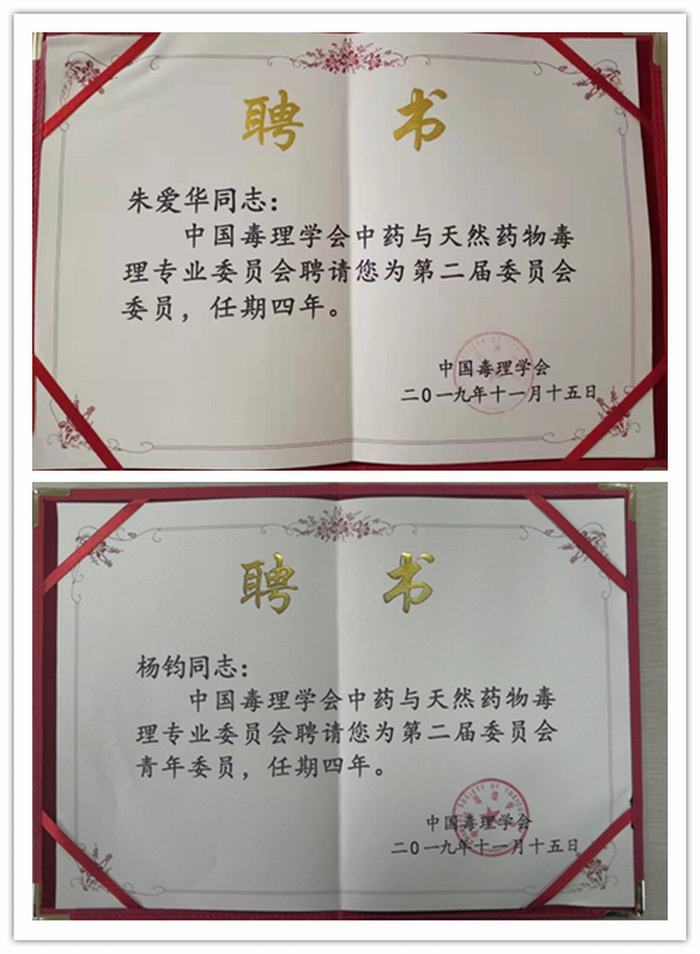 聘书
朱爱华同志：
中国毒理学会中药与天然药物毒
理专业委员会聘请您为第二届委员会
委员，任期四年。
中国毒理学会
二0一九年十一月十五日
聘书
杨钧同志：
中国毒理学会中药与天然药物毒
理专业委员会聘请您为第二届委员会
青年委员，任期四年。
中国毒理学会
二0一九年十一月十五日